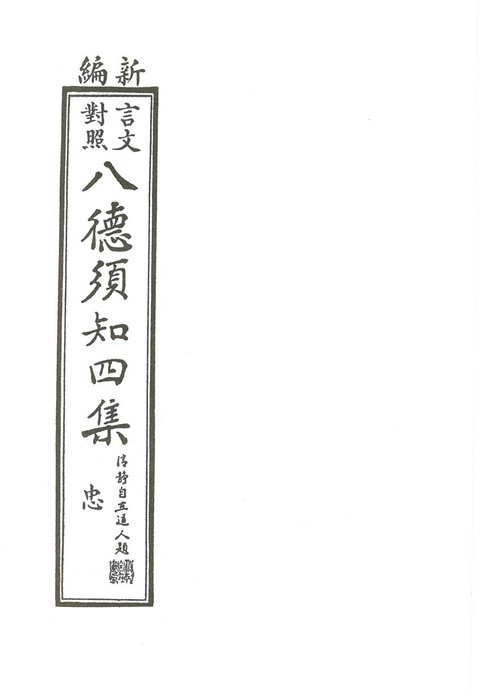 新編
言文
對照
八德須知四集
忠
清靜自在道人題